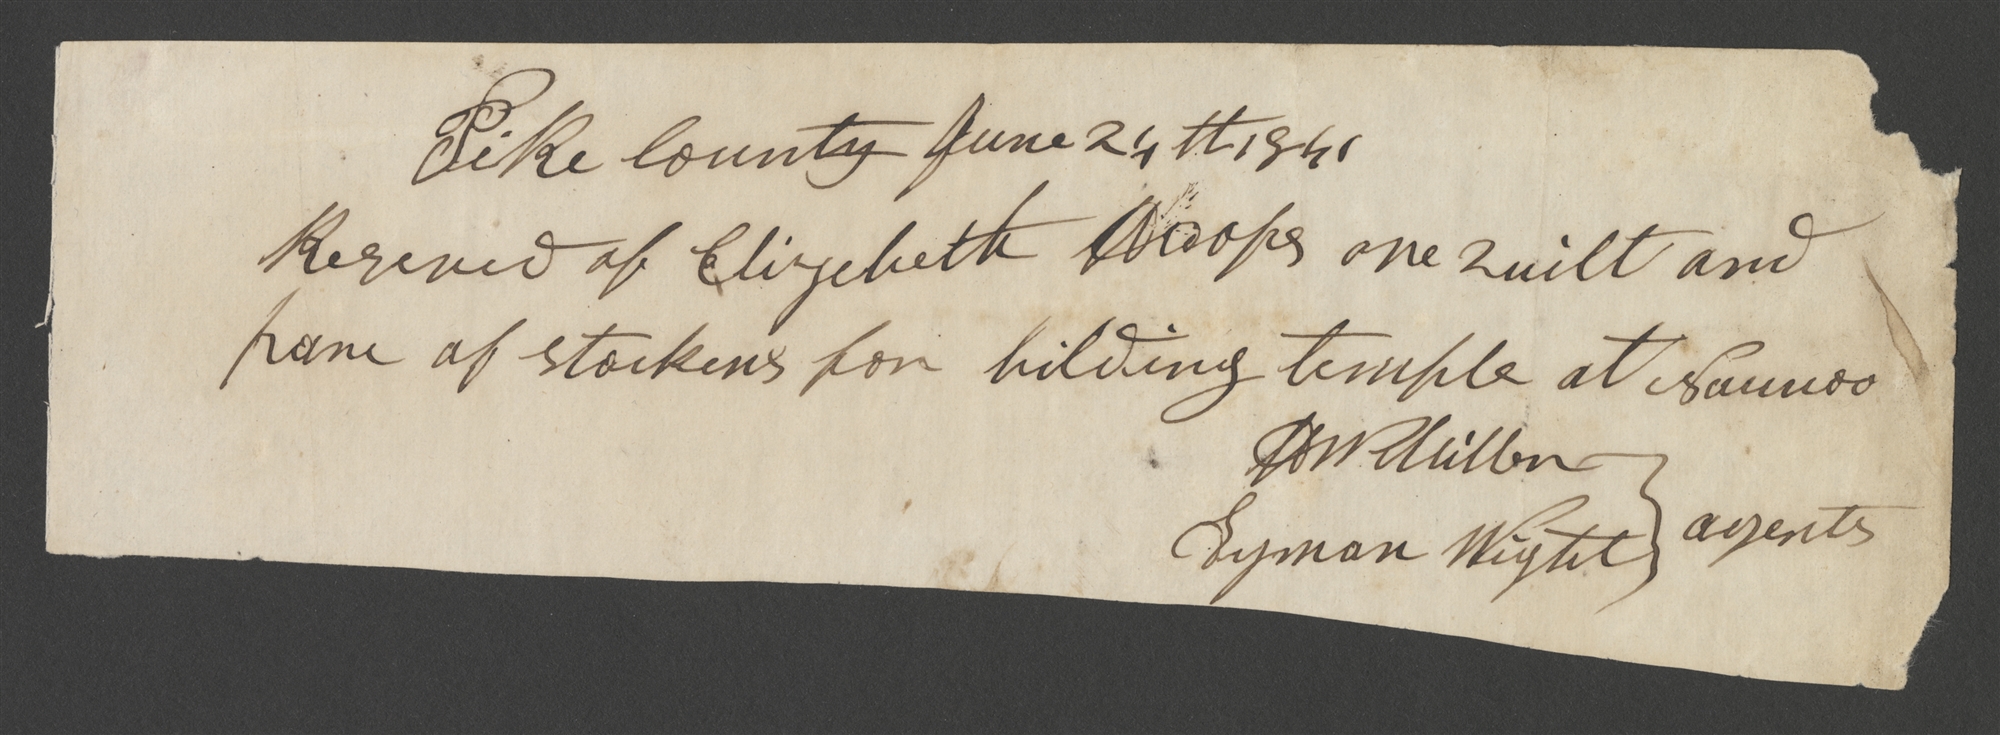 Pike County June 24th 1841
Reseved of Elizebeth Hoops one quilt and
pare of stockens for bilding temple at Nauvoo
H W Miller
Lyman Wight } agents